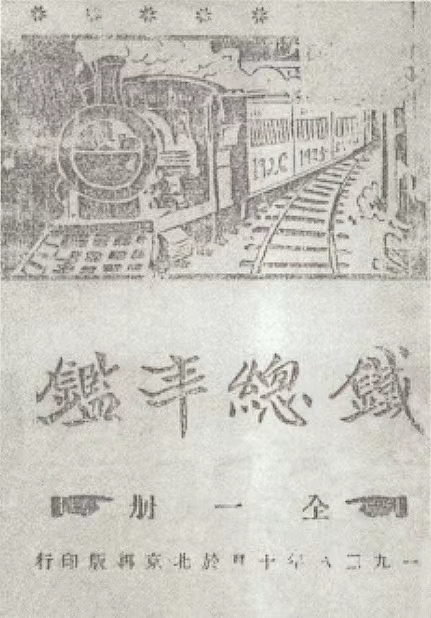 1925
鐵總年鑑
全一冊
一九二 年十月於北京再版印行